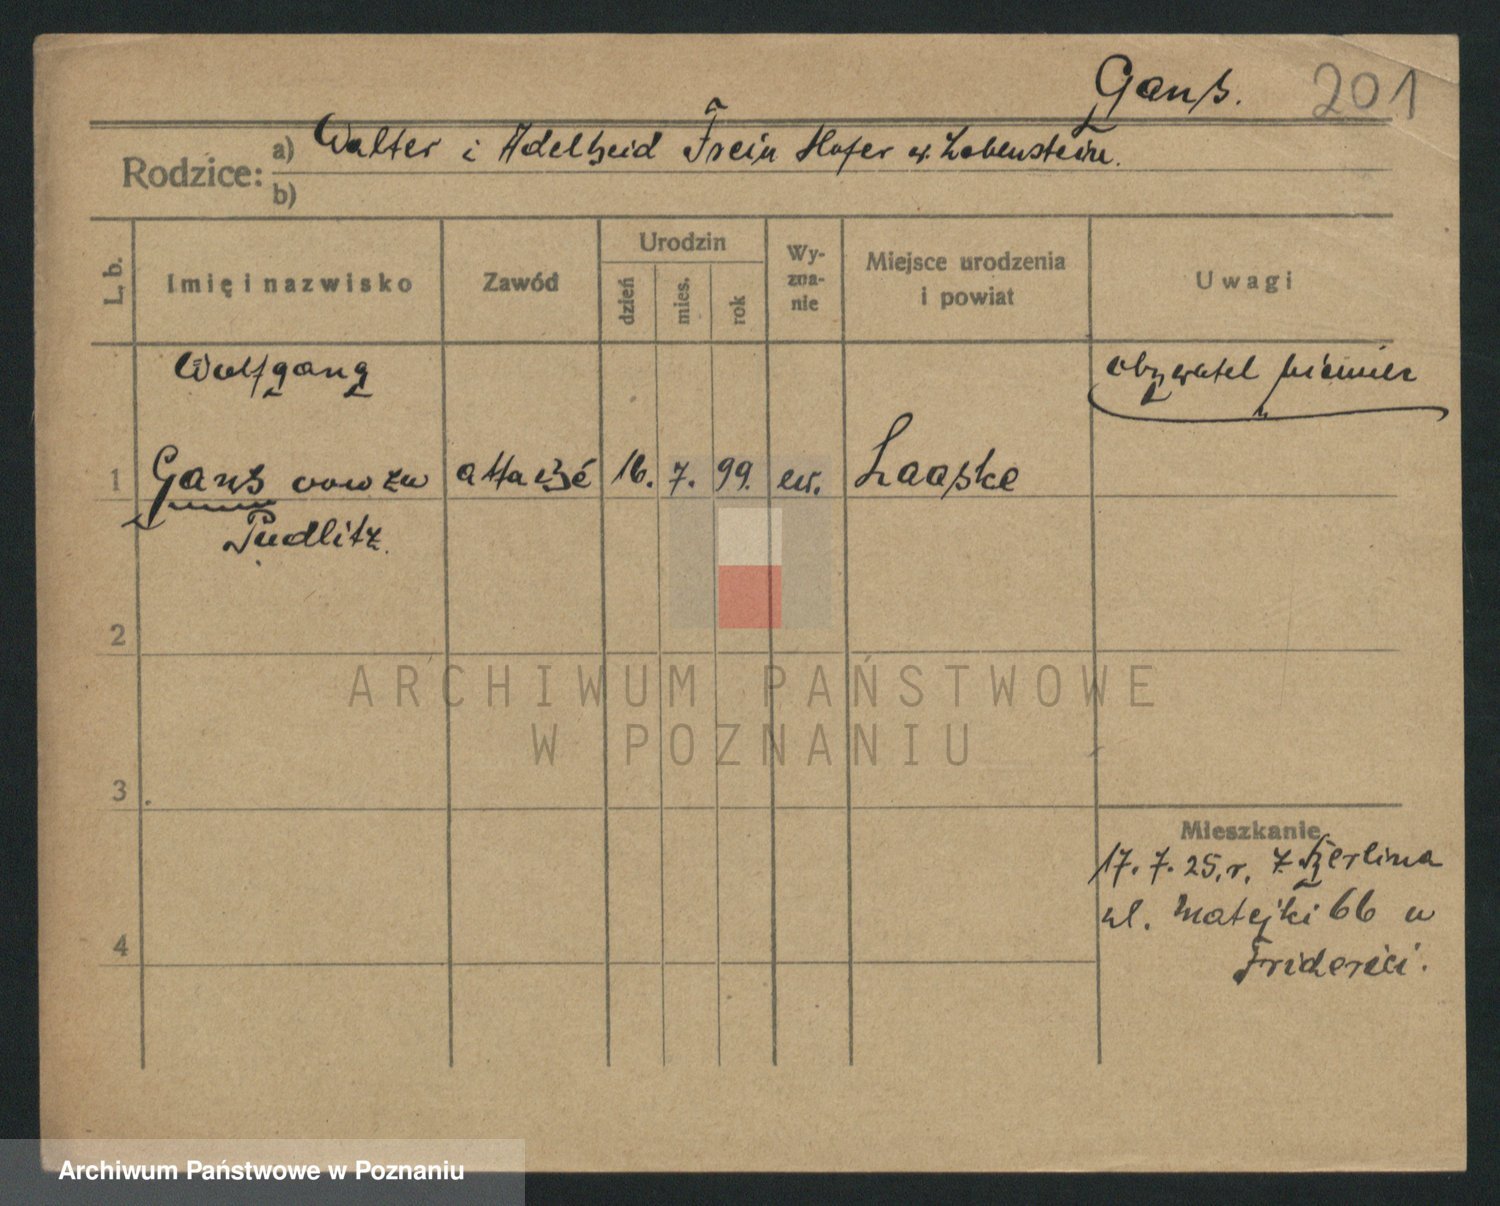 Gans.
201
Rodzice:
a) Walter i Adelheid Freiin Hofer v. Lobenstein.
b)
L. b.
Imię i nazwisko
Zawód
Urodzin
dzień
mies.
rok
Wy-
zna-
nie
Miejsce urodzenia
i powiat
Uwagi
Wolfgang
obywatel niemiec
1 Gans von zu attaché 16. 7. 99. ew. Laaske
Pudlitz.
2
ARCHIWUM PAŃSTWOWE
W POZNANIU
3
Mieszkanie
17. 7. 25. r. z Berlina
ul. Matejki 66 u
4
Friderici.
Archiwum Państwowe w Poznaniu